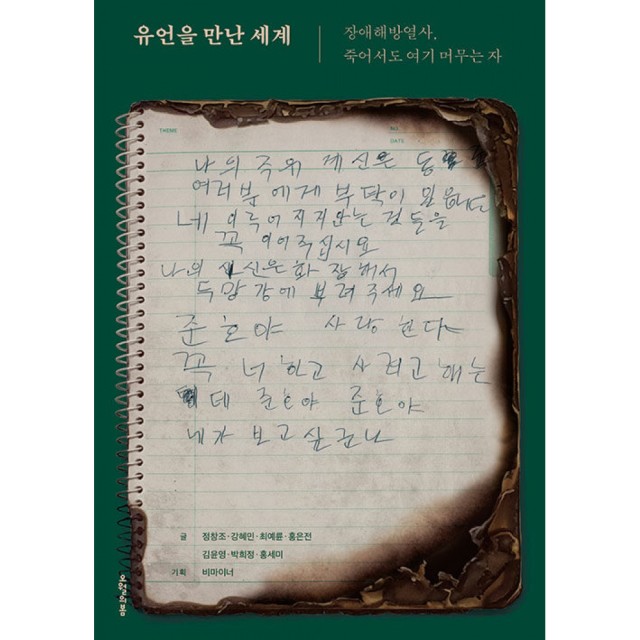 유언을 만난 세계
장애해방열사,
죽어서도 여기 머무는 자
THEME
NO.
DATE
나의 주위 계신은
여러분에게 부탁이 있읍니다
네 이루어지지안는 것들을
꼭 이어주십시요
나의 신은 화장해서
두망강에 뿌려주세요
준호야 사랑한다
꼭 너하고 사려고 해는
데 준호야 준호야
네가 보고싶구나
글 정창조·강혜민·최예륜·홍은전
김윤영·박희정·홍세미
기획 비마이너
오월의봄